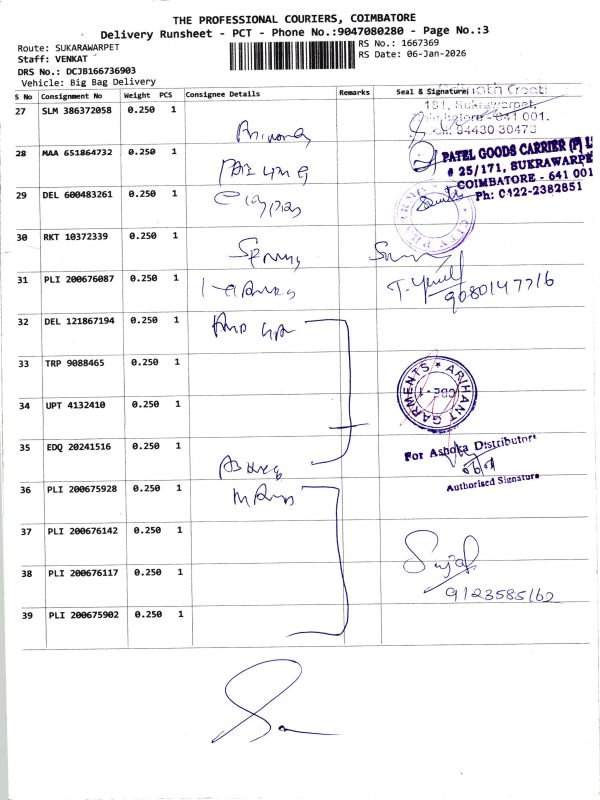 THE PROFESSIONAL COURIERS, COIMBATORE
Delivery Runsheet - PCT - Phone No.:9047080280 - Page No.:3
Route: SUKARAWARPET
RS No.: 1667369
Staff: VENKAT
RS Date: 06-Jan-2026
DRS No.: DCJB166736903
Vehicle: Big Bag Delivery
S No Consignment No Weight PCS Consignee Details Remarks Seal & Signature
27 SLM 386372058 0.250 1
161, Sukrawarpet,
Coimbatore - 641 001.
94430 30473
28 MAA 651864732 0.250 1
PATEL GOODS CARRIER (P)
# 25/171, SUKRAWARPE
COIMBATORE - 641 001
Ph: 0422-2382851
29 DEL 600483261 0.250 1
30 RKT 10372339 0.250 1
31 PLI 200676087 0.250 1
9080147716
32 DEL 121867194 0.250 1
33 TRP 9088465 0.250 1
ARIHANT GARMENTS
CBE - 1
34 UPT 4132410 0.250 1
35 EDQ 20241516 0.250 1
For Ashoka Distributors
Authorised Signature
36 PLI 200675928 0.250 1
37 PLI 200676142 0.250 1
38 PLI 200676117 0.250 1
9123585162
39 PLI 200675902 0.250 1